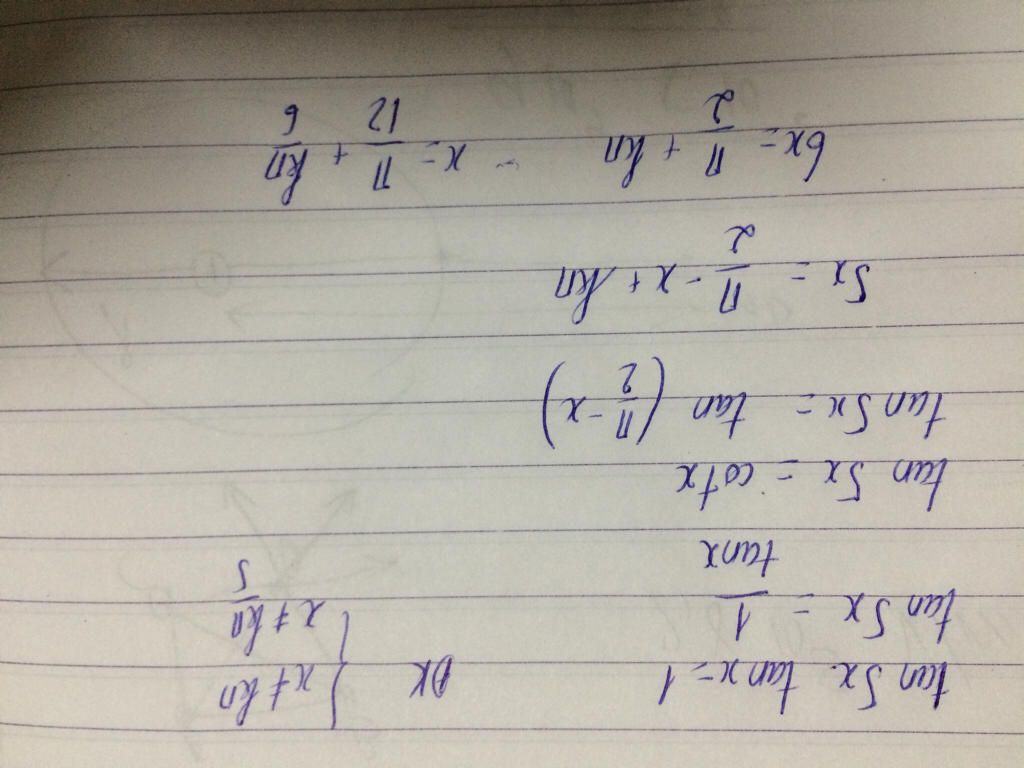 tan 5x. tan x = 1 ĐK { x ≠ kπ
tan 5x = 1/tan x x ≠ kπ/5
tan 5x = cot x
tan 5x = tan (π/2 - x)
5x = π/2 - x + kπ
6x = π/2 + kπ - x = π/12 + kπ/6